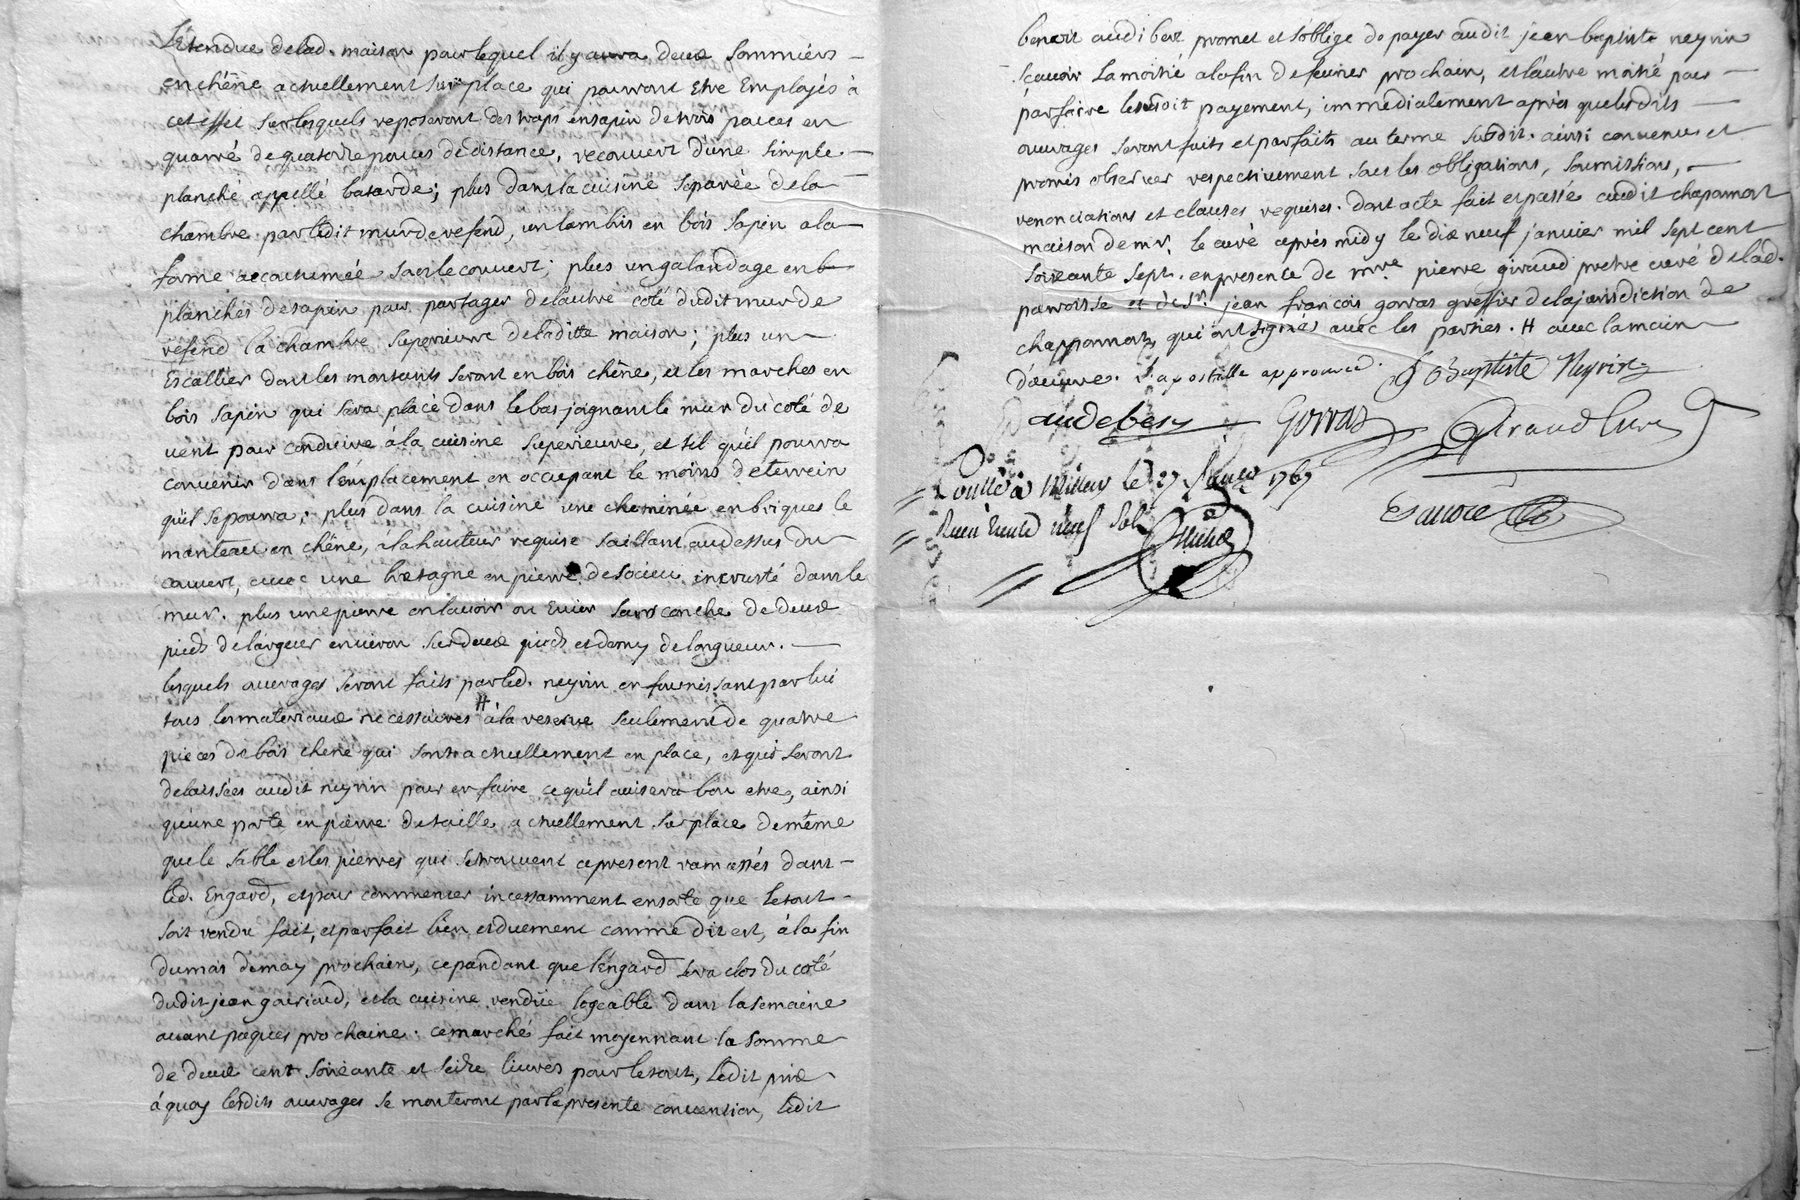 L'étendue delad. maison pour lequel il y aura deux sommiers
en chêne actuellement sur place qui pourront Etre Employés à
cet effet sur lesquels reposeront des traps en sapin de trois pouces en
quarré de quatorze pouces de distance, recouvert d'une simple
planché appellé batarde; plus dans la cuisine separée de la
chambre par ledit mur de refend, un lambris en bois sapin a la
forme accoutumée sous le couvert; plus un galandage en
planches de sapin pour partager de l'autre coté dudit mur de
refend la chambre superieure de laditte maison; plus un
Escallier dont les montants seront en bois chêne, et les marches en
bois sapin qui sera placé dans le bas joignant le mur du coté de
vent pour conduire à la cuisine superieure, et sil qu'il pourra
convenir dans l'emplacement en occupant le moins de terrein
qu'il se pourra; plus dans la cuisine une cheminée en briques le
manteau en chêne, à la hauteur requise saillant au dessus du
couvert, avec une bretagne en pierre de socieu incrusté dans le
mur. plus une pierre en lavoir ou Evier sans conche de deux
pieds de largeur environ sur deux pieds et demy de longueur.
lesquels ouvrages seront faits par led. neyrin en fournissant par lui
tous les materiaux necessaires # à la reserve seulement de quatre
pieces de bois chene qui sont actuellement en place, et qui seront
delaissées audit neyrin pour en faire ce qu'il avisera bon etre, ainsi
qu'une porte en pierre de taille actuellement sur place de même
que le sable et les pierres qui se trouvent apresent ramassés dans
led. Engard, et pour commencer incessamment ensorte que le tout
soit rendu fait, et parfait bien et duement comme dit est, à la fin
du mois de may prochain, cependant que l'engard sera clos du coté
dudit jean gairiaud, et la cuisine rendüe logeable dans la semaine
avant paques prochaine. ce marché fait moyennant la somme
de deux cent soixante et seize livres pour le tout, Ledit prix
à quoy lesdits ouvrages se monteront par la presente convention, Ledit
benoit audibert promet et s'oblige de payer audit jean baptiste neyrin
scavoir la moitié a la fin de fevrier prochain, et l'autre moitié pour
parfaire ledit payement, immediatement après que lesdits
ouvrages seront faits et parfaits au terme susdit. ainsi convenu et
promis observer respectivement sous les obligations, soumissions,
renonciations et clauses requises. dont acte fait et passé audit chaponost
maison de mr. le curé après midy le dix neuf janvier mil sept cent
soixante sept. en presence de mre pierre giraud pretre curé de lad.
parroisse et de sr. jean françois gorras greffier de la jurisdiction de
chapponost, qui ont signé avec les parties. # avec la main
d'œuvre. L'apostille approuvé. J Baptiste Neyrin
audebert Gorras Giraud Curé
Contlé a Millery le 27 Janvier 1767
Reçu treize neuf sols